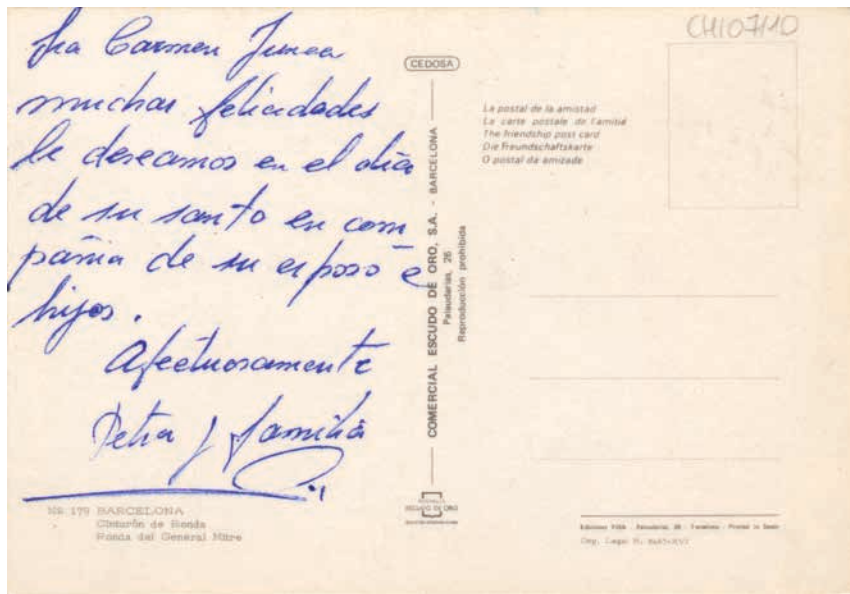 CH107110
Sra Carmen
muchas felicidades
le deseamos en el día
de su santo en com
pañia de su esposo e
hijos.
Afectuosamente
Petra y familia
CEDOSA
COMERCIAL ESCUDO DE ORO, S.A. - BARCELONA
Palaudarias, 26
Reproducción prohibida
La postal de la amistad
La carte postale de l'amitié
The friendship post card
Die Freundschaftskarte
O postal da amizade
179 BARCELONA
Cinturón de Ronda
Ronda del General Mitre
ESCUDO DE ORO